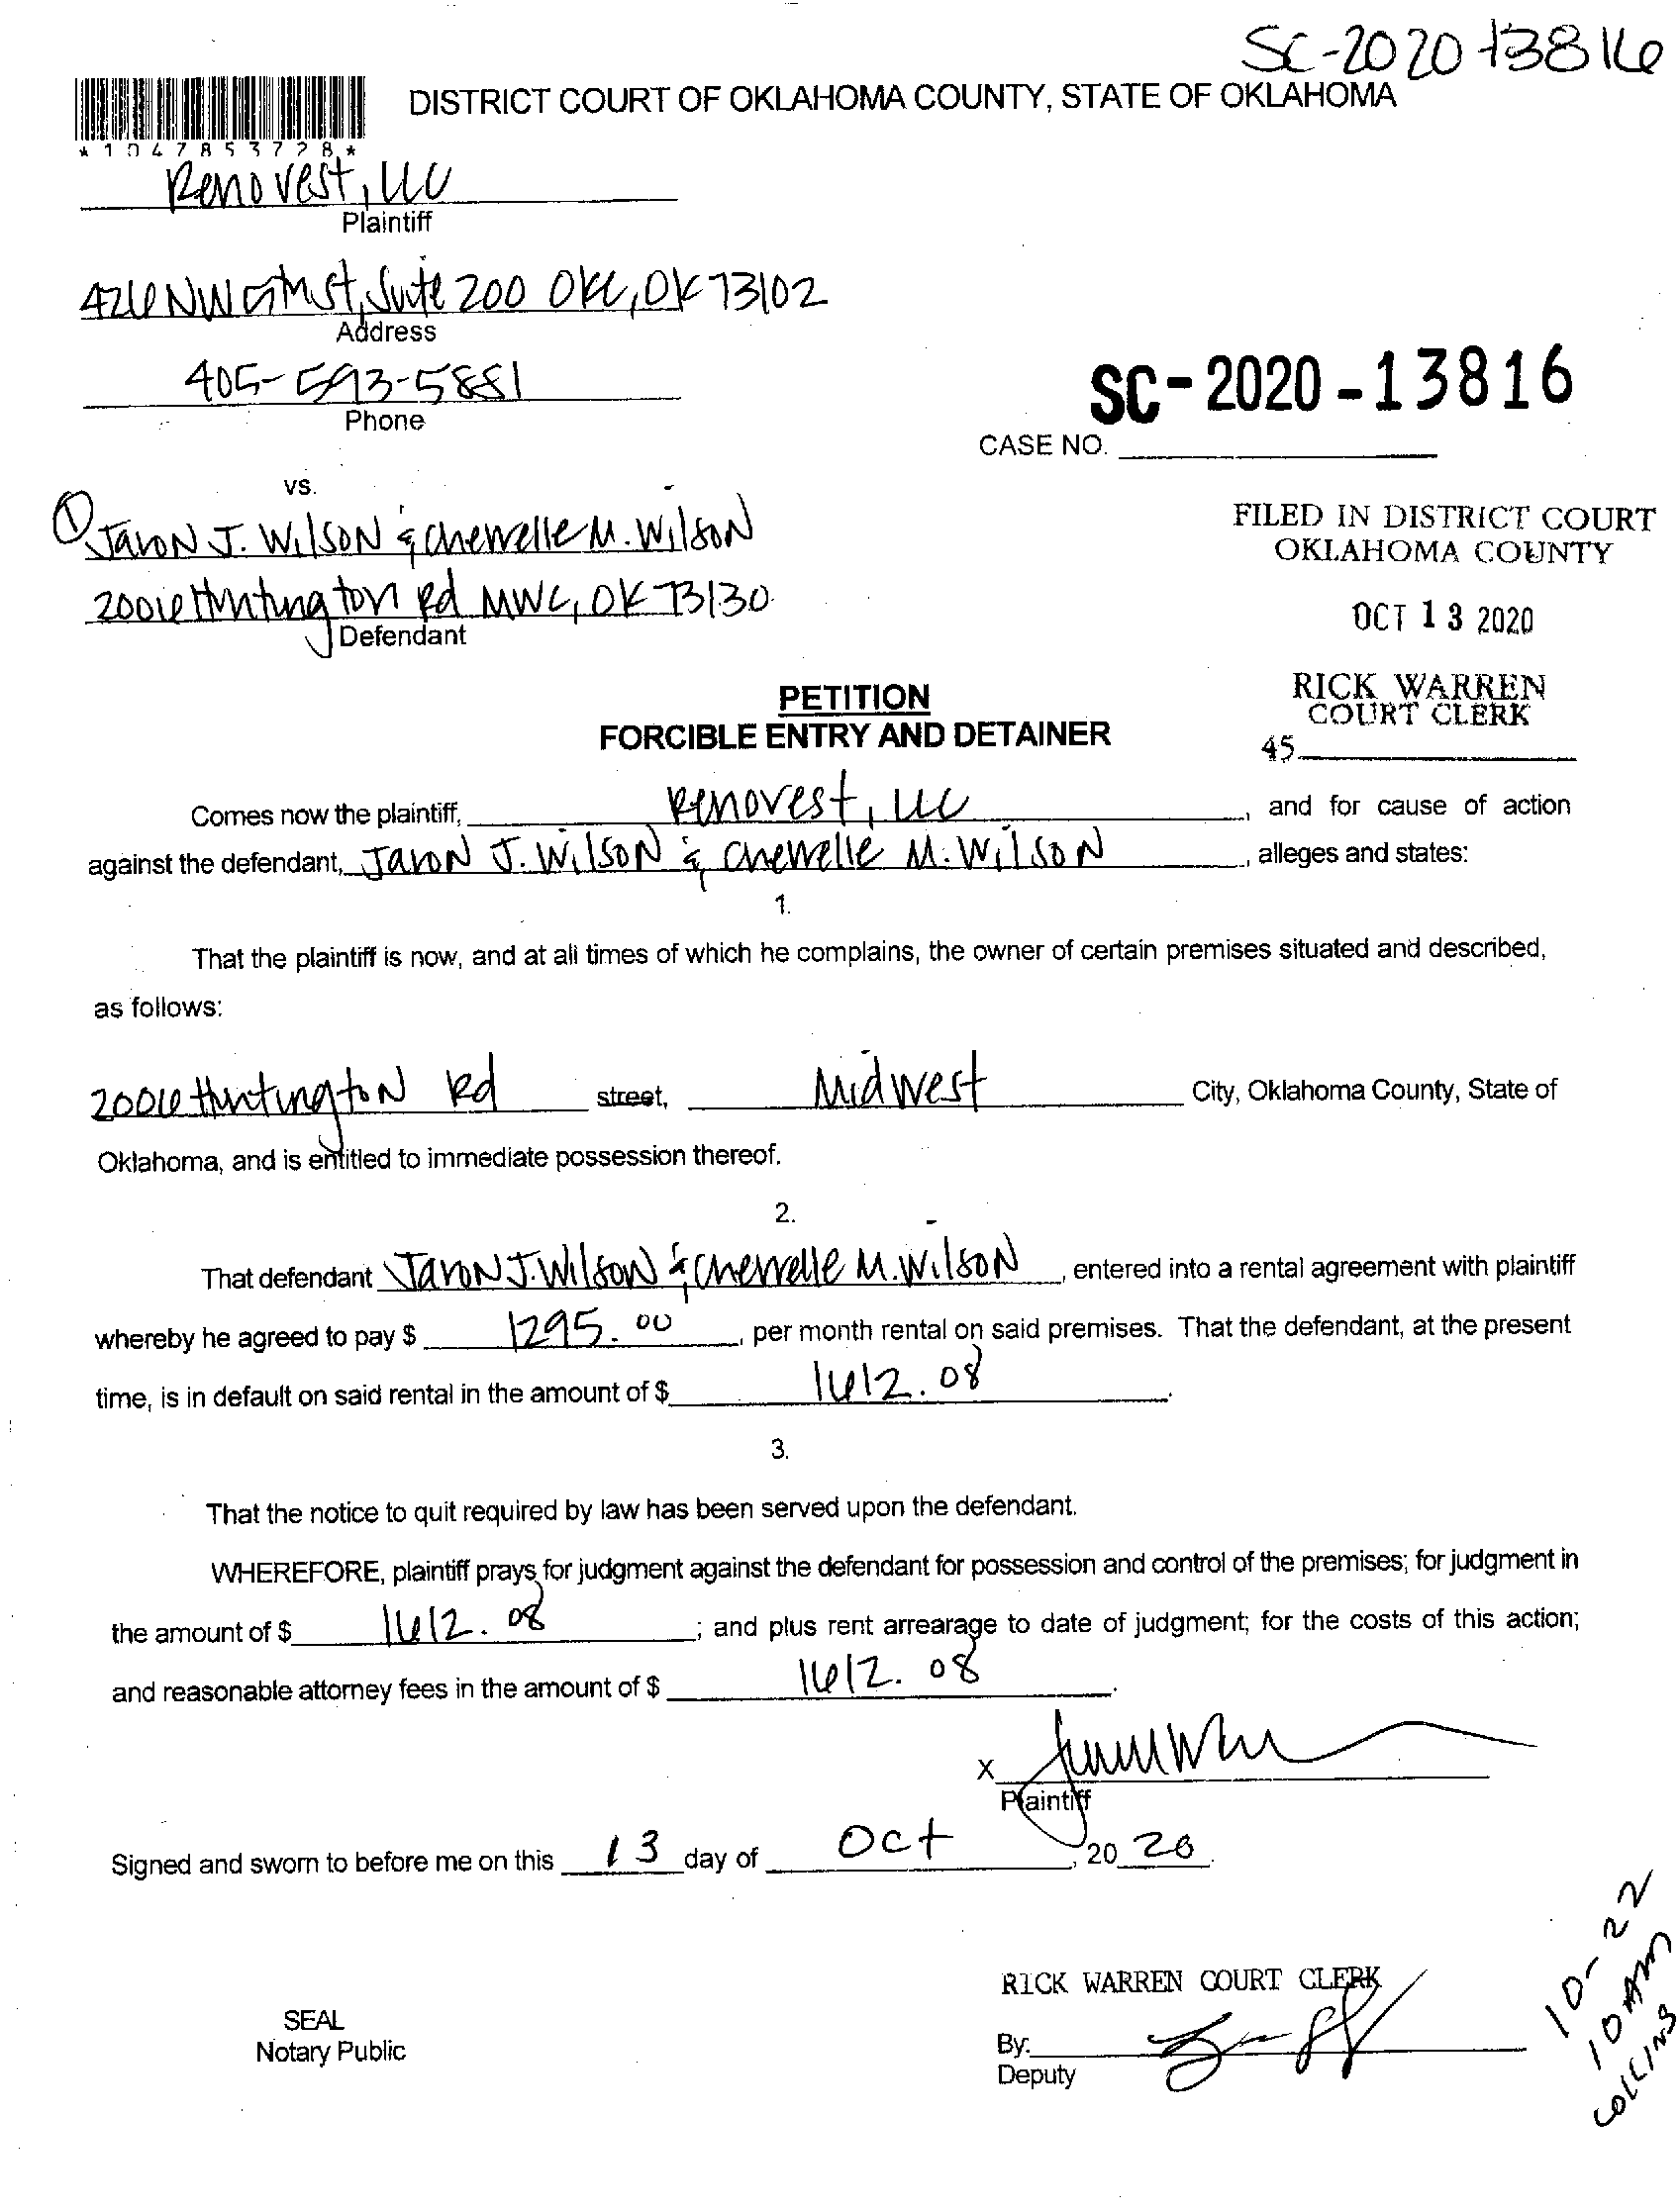 SC-2020-13816
DISTRICT COURT OF OKLAHOMA COUNTY, STATE OF OKLAHOMA
* 1 0 4 7 8 5 3 7 2 8 *
Renovest, LLC
Plaintiff
426 NW 5th St, Suite 200 OKC, OK 73102
Address
405-593-5881
Phone
SC-2020-13816
CASE NO.
vs.
① Jaron J. Wilson & Cherrelle M. Wilson
2006 Huntington Rd MWC, OK 73130
Defendant
FILED IN DISTRICT COURT
OKLAHOMA COUNTY
OCT 13 2020
RICK WARREN
COURT CLERK
45
PETITION
FORCIBLE ENTRY AND DETAINER
Comes now the plaintiff, Renovest, LLC, and for cause of action
against the defendant, Jaron J. Wilson & Cherrelle M. Wilson, alleges and states:
1.
That the plaintiff is now, and at all times of which he complains, the owner of certain premises situated and described,
as follows:
2006 Huntington Rd street, Midwest City, Oklahoma County, State of
Oklahoma, and is entitled to immediate possession thereof.
2.
That defendant Jaron J. Wilson & Cherrelle M. Wilson, entered into a rental agreement with plaintiff
whereby he agreed to pay $ 1295.00, per month rental on said premises. That the defendant, at the present
time, is in default on said rental in the amount of $ 1612.08.
3.
That the notice to quit required by law has been served upon the defendant.
WHEREFORE, plaintiff prays for judgment against the defendant for possession and control of the premises; for judgment in
the amount of $ 1612.08; and plus rent arrearage to date of judgment; for the costs of this action;
and reasonable attorney fees in the amount of $ 1612.08.
X
Plaintiff
Signed and sworn to before me on this 13 day of Oct, 2020.
RICK WARREN COURT CLERK
SEAL
Notary Public
By:
Deputy
10-22
10 AM
COLLINS